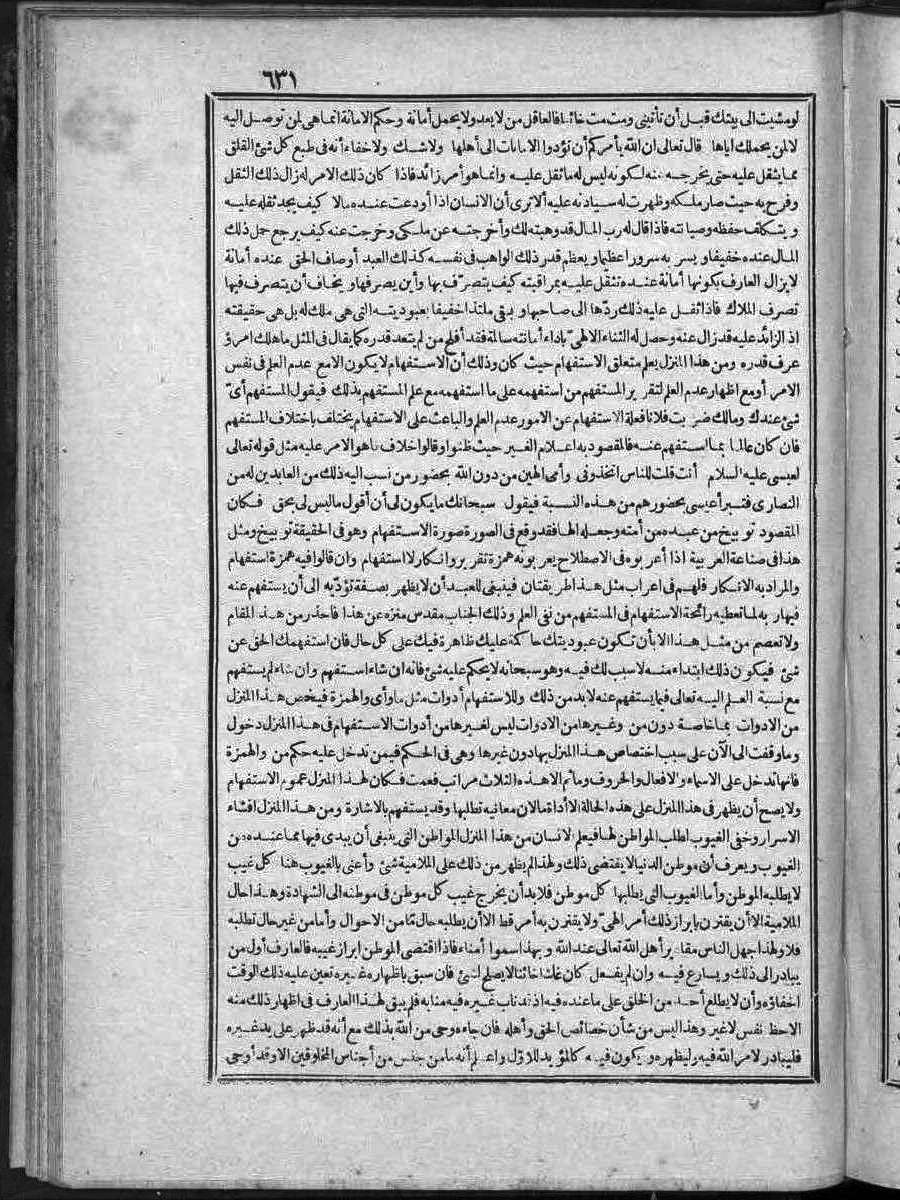 ٦٣١
لو مشيت الى بيتك قبل أن تأتيني ومت مت خائنا فالعاقل من لا يعد ولا يحمل أمانة وحكم الامانة انما هى لمن توصل اليه
لا لمن يحملك اياها قال تعالى ان الله يأمركم أن تؤدوا الامانات الى أهلها ولا شك ولا خفاء أنه فى طبع كل شئ القلق
مما يثقل عليه حتى يخرجه عنه لكونه ليس له ما ثقل عليه وانما هو أمر زائد فاذا كان ذلك الامر له زال ذلك الثقل
وفرح به حيث صار ملكه وظهرت له سيادته عليه ألا ترى أن الانسان اذا أودعت عنده مالا كيف يجد ثقله عليه
ويتكلف حفظه وصيانته فاذا قال له رب المال قد وهبته لك وأخرجته عن ملكى وخرجت عنه كيف يرجع حمل ذلك
المال عنده خفيفا ويسر به سرورا عظيما ويعظم قدر ذلك الواهب فى نفسه كذلك العبد أوصاف الحق عنده أمانة
لا يزال العارف بكونها أمانة عنده تثقل عليه بمراقبته كيف يتصرف بها وأين يصرفها ويخاف أن يتصرف فيها
تصرف الملاك فاذا ثقل عليه ذلك ردها الى صاحبها وبقى ملتذا خفيفا بعبوديته التى هى ملك له بل هى حقيقته
اذ الزائد عليه قد زال عنه وحصل له الثناء الالهى باداء أمانته سالمة فقد أفلح من لم يتعد قدره كما يقال فى المثل ما هلك امرؤ
عرف قدره ومن هذا المنزل يعلم متعلق الاستفهام حيث كان وذلك أن الاستفهام لا يكون الا مع عدم العلم فى نفس
الامر أو مع اظهار عدم العلم لتقرير المستفهم من استفهمه على ما استفهمه مع علم المستفهم بذلك فيقول المستفهم أى
شئ عندك ومالك ضربت فلانا فعلة الاستفهام عن الامور عدم العلم والباعث على الاستفهام يختلف باختلاف المستفهم
فان كان عالما بما استفهم عنه فالمقصود به اعلام الغير حيث ظنوا وقالوا خلاف ما هو الامر عليه مثل قوله تعالى
لعيسى عليه السلام أأنت قلت للناس اتخذونى وأمى الهين من دون الله بحضور من نسب اليه ذلك من العابدين له من
النصارى فتبرأ عيسى بحضورهم من هذه النسبة فيقول سبحانك ما يكون لى أن أقول ما ليس لى بحق فكان
المقصود توبيخ من عبده من أمته وجعله الها فقد وقع فى الصورة صورة الاستفهام وهو فى الحقيقة توبيخ ومثل
هذا فى صناعة العربية اذا أعربوه فى الاصطلاح يعربونه همزة تقرير وانكار لا استفهام وان قالوا فيه همزة استفهام
والمراد به الانكار فلهم فى اعراب مثل هذا طريقتان فينبغى للعبد أن لا يظهر بصفة تؤديه الى أن يستفهم عنه
فيها ربه لما تعطيه رائحة الاستفهام فى المستفهم من نفى العلم وذلك الجناب مقدس منزه عن هذا فاحذر من هذا المقام
ولا تعصم من مثل هذا الا بأن تكون عبوديتك حاكمة عليك ظاهرة فيك على كل حال فان استفهمك الحق عن
شئ فيكون ذلك ابتداء منه لا سبب لك فيه وهو سبحانه لا يحكم عليه شئ فانه ان شاء استفهم وان شاء لم يستفهم
مع نسبة العلم اليه تعالى فيما يستفهم عنه لا بد من ذلك وللاستفهام أدوات مثل ما وأى والهمزة فيخص هذا المنزل
من الادوات بما خاصة دون من وغيرها من الادوات ليس لغيرها من أدوات الاستفهام فى هذا المنزل دخول
وما وقفت الى الآن على سبب اختصاص هذا المنزل بها دون غيرها وهى فى الحكم فيمن تدخل عليه حكم من والهمزة
فانها تدخل على الاسماء والافعال والحروف وما ثم الا هذه الثلاث مراتب فعمت فكان لهذا المنزل عموم الاستفهام
ولا يصح أن يظهر فى هذا المنزل على هذه الحالة الا أداة ما لان معانيه تطلبها وقد يستفهم بالاشارة ومن هذا المنزل افشاء
الاسرار وخفى الغيوب لطلب المواطن لها فيعلم الانسان من هذا المنزل المواطن التى ينبغى أن يبدى فيها مما عنده من
الغيوب ويعرف أن موطن الدنيا لا يقتضى ذلك ولهذا لم يظهر من ذلك على الملامية شئ وأعنى بالغيوب هنا كل غيب
لا يطلبه الموطن وأما الغيوب التى يطلبها كل موطن فلا بد أن يخرج غيب كل موطن فى موطنه الى الشهادة وهذا حال
الملامية الا أن يقترن بابراز ذلك أمر الهى ولا يقترن به أمر قط الا أن يطلبه حال ما من الاحوال وأما من غير حال تطلبه
فلا ولهذا جهل الناس مقادير أهل الله تعالى عند الله وبهذا سموا أمناء فاذا اقتضى الموطن ابراز غيبه فالعارف أول من
يبادر الى ذلك ويسارع فيه وان لم يفعل كان غاشا خائنا لا يصلح لشئ فان سبق باظهاره غيره تعين عليه ذلك الوقت
اخفاؤه وأن لا يطلع أحد من الخلق على ما عنده فيه اذ قد ناب غيره فيه منابه فلم يبق لهذا العارف فى اظهار ذلك منه
الا حظ نفس لا غير وهذا ليس من شأن خصائص الحق وأهله فان جاءه وحى من الله بذلك مع أنه قد ظهر على يد غيره
فليبادر لامر الله فيه وليظهره ويكون فيه كالمؤيد للاول واعلم أنه ما من جنس من أجناس المخلوقين الا وقد أوحى